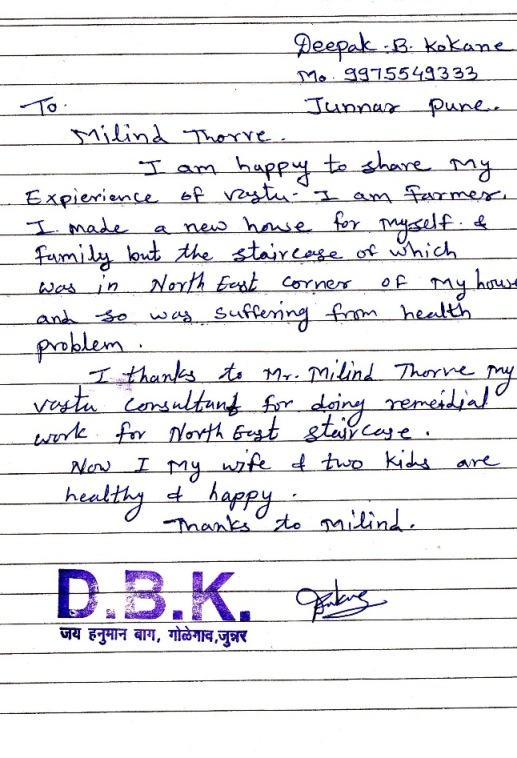 Deepak .B. Kokane
Mo. 9975549333
To. Junnar Pune.
Milind Thorve.
I am happy to share my
Expierience of vastu. I am Farmer.
I made a new house for myself. &
family but the staircase of which
was in North East corner of my hous
and so was suffering from health
problem.
I thanks to Mr. Milind Thorve my
vastu consultant for doing remeidial
work for North East staircase.
Now I my wife & two kids are
healthy & happy.
Thanks to milind.
D.B.K.
जय हनुमान बाग, गोळेगाव,जुन्नर